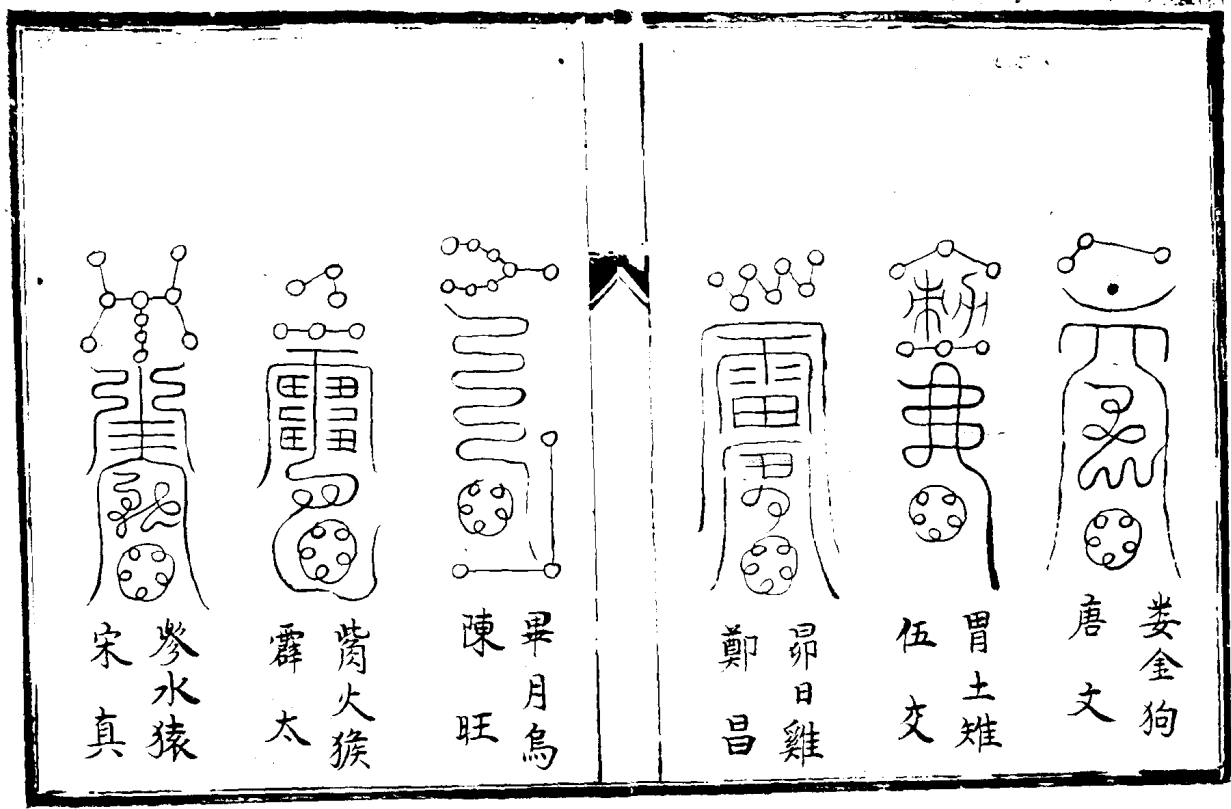 婁金狗
唐文
胃土雉
伍交
昴日雞
鄭昌
畢月烏
陳旺
觜火猴
霹太
參水猿
宋真